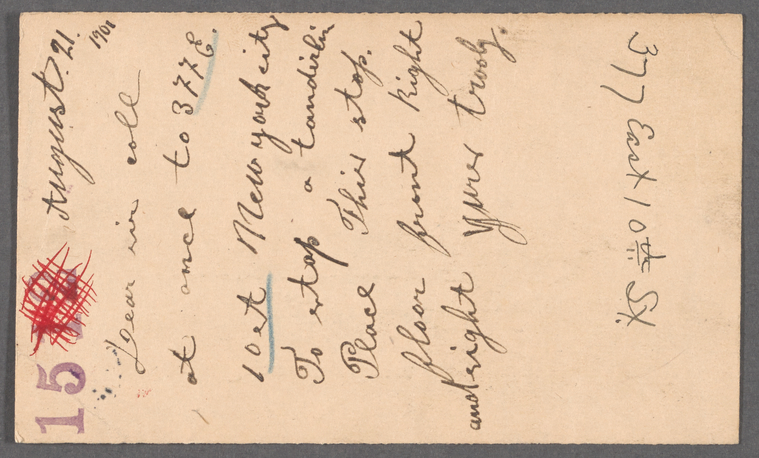 15
August. 21. 1901
Dear sir coll
at once to 377 E.
10 st New york city
To stop a tandirlin
Place This stop.
floor front right
and right yours trooly.
377 East 10th St